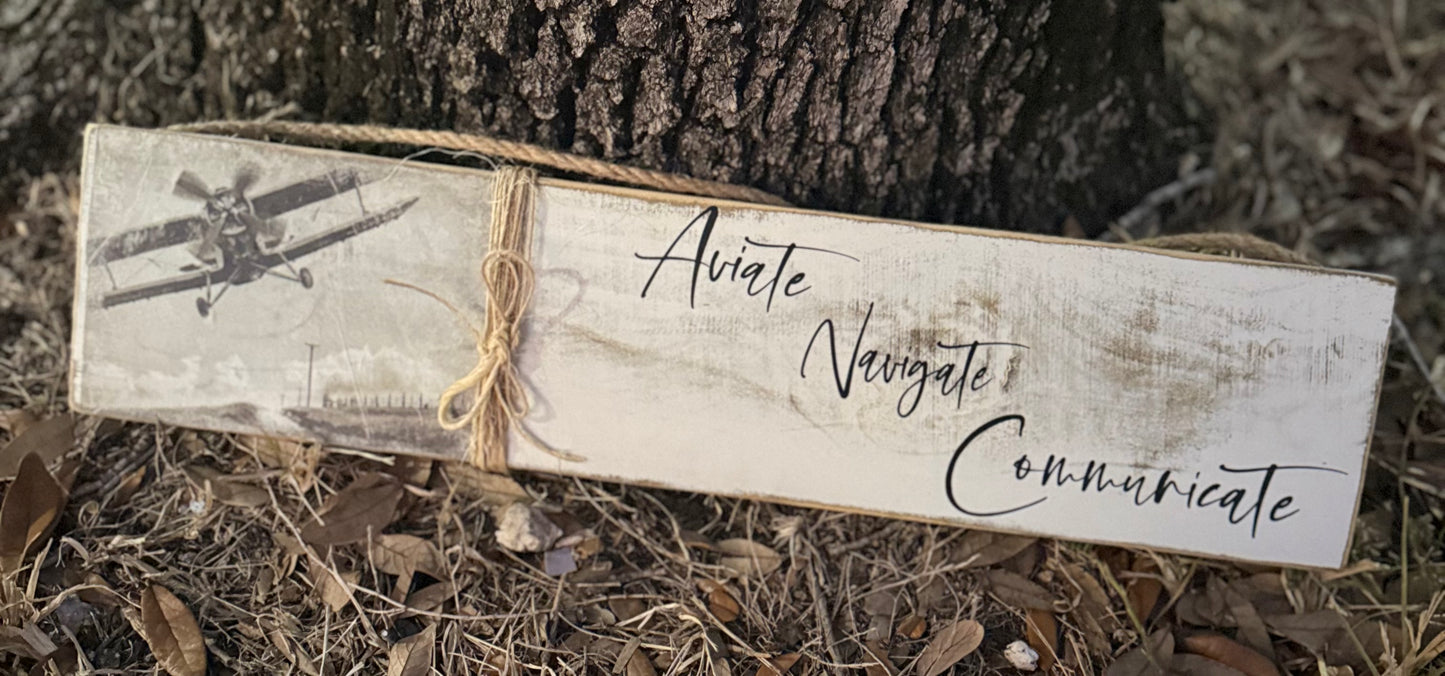 Aviate
Navigate
Communicate